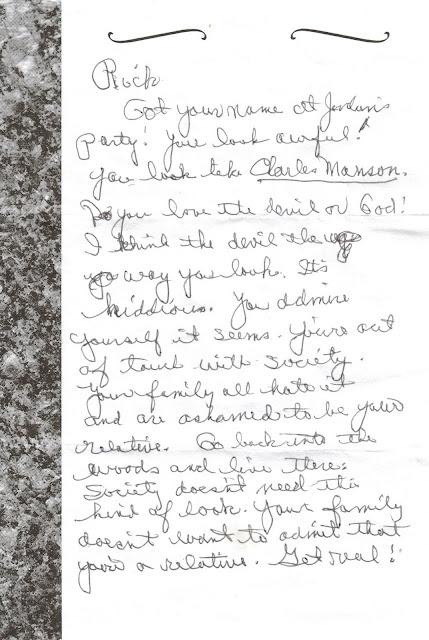 Rick
Got your name at Jordan's
party! You look awful!
You look like Charles Manson.
Do you love the devil or God!
I think the devil the
way you look. It's
hiddious. You admire
yourself it seems. You're out
of touch with society.
Your family all hate it
and are ashamed to be your
relative. Go back into the
woods and live there.
Society doesn't need this
kind of look. Your family
doesn't want to admit that
you're a relative. Get real!